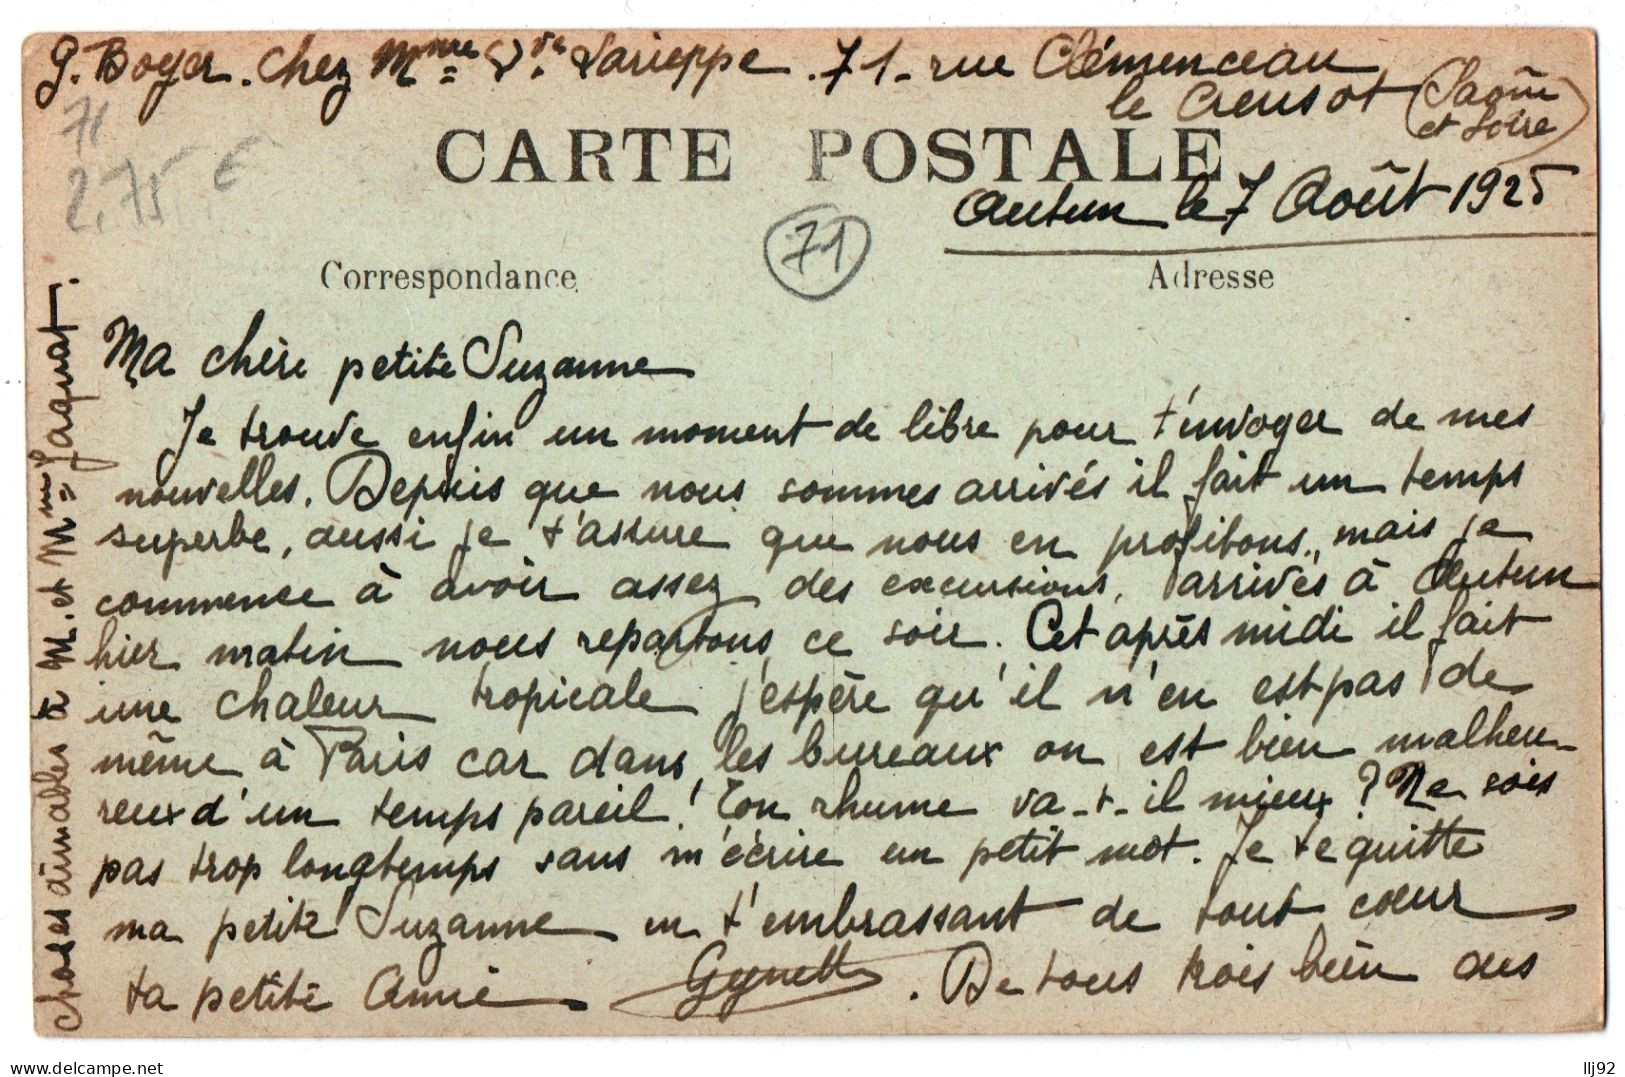 G. Boyer. chez Mme Vve Larieppe. 71- rue Clémenceau
le Creusot (Saône
et Loire)
71
2,75 €
CARTE POSTALE
Autun le 7 Août 1925
71
Correspondance
Adresse
Ma chère petite Suzanne
Je trouve enfin un moment de libre pour t'envoyer de mes
nouvelles. Depuis que nous sommes arrivés il fait un temps
superbe, aussi je t'assure que nous en profitons., mais je
commence à avoir assez des excursions, arrivés à Autun
hier matin nous repartons ce soir. Cet après midi il fait
une chaleur tropicale j'espère qu'il n'en est pas de
même à Paris car dans les bureaux on est bien malheu-
reux d'un temps pareil! Ton rhume va-t-il mieux? Ne sois
pas trop longtemps sans m'écrire un petit mot. Je te quitte
ma petite Suzanne en t'embrassant de tout cœur
ta petite Amie Gynette. De tous trois bien des
choses aimables à M. et Mme Jaquat.
llj92
delcampe.net